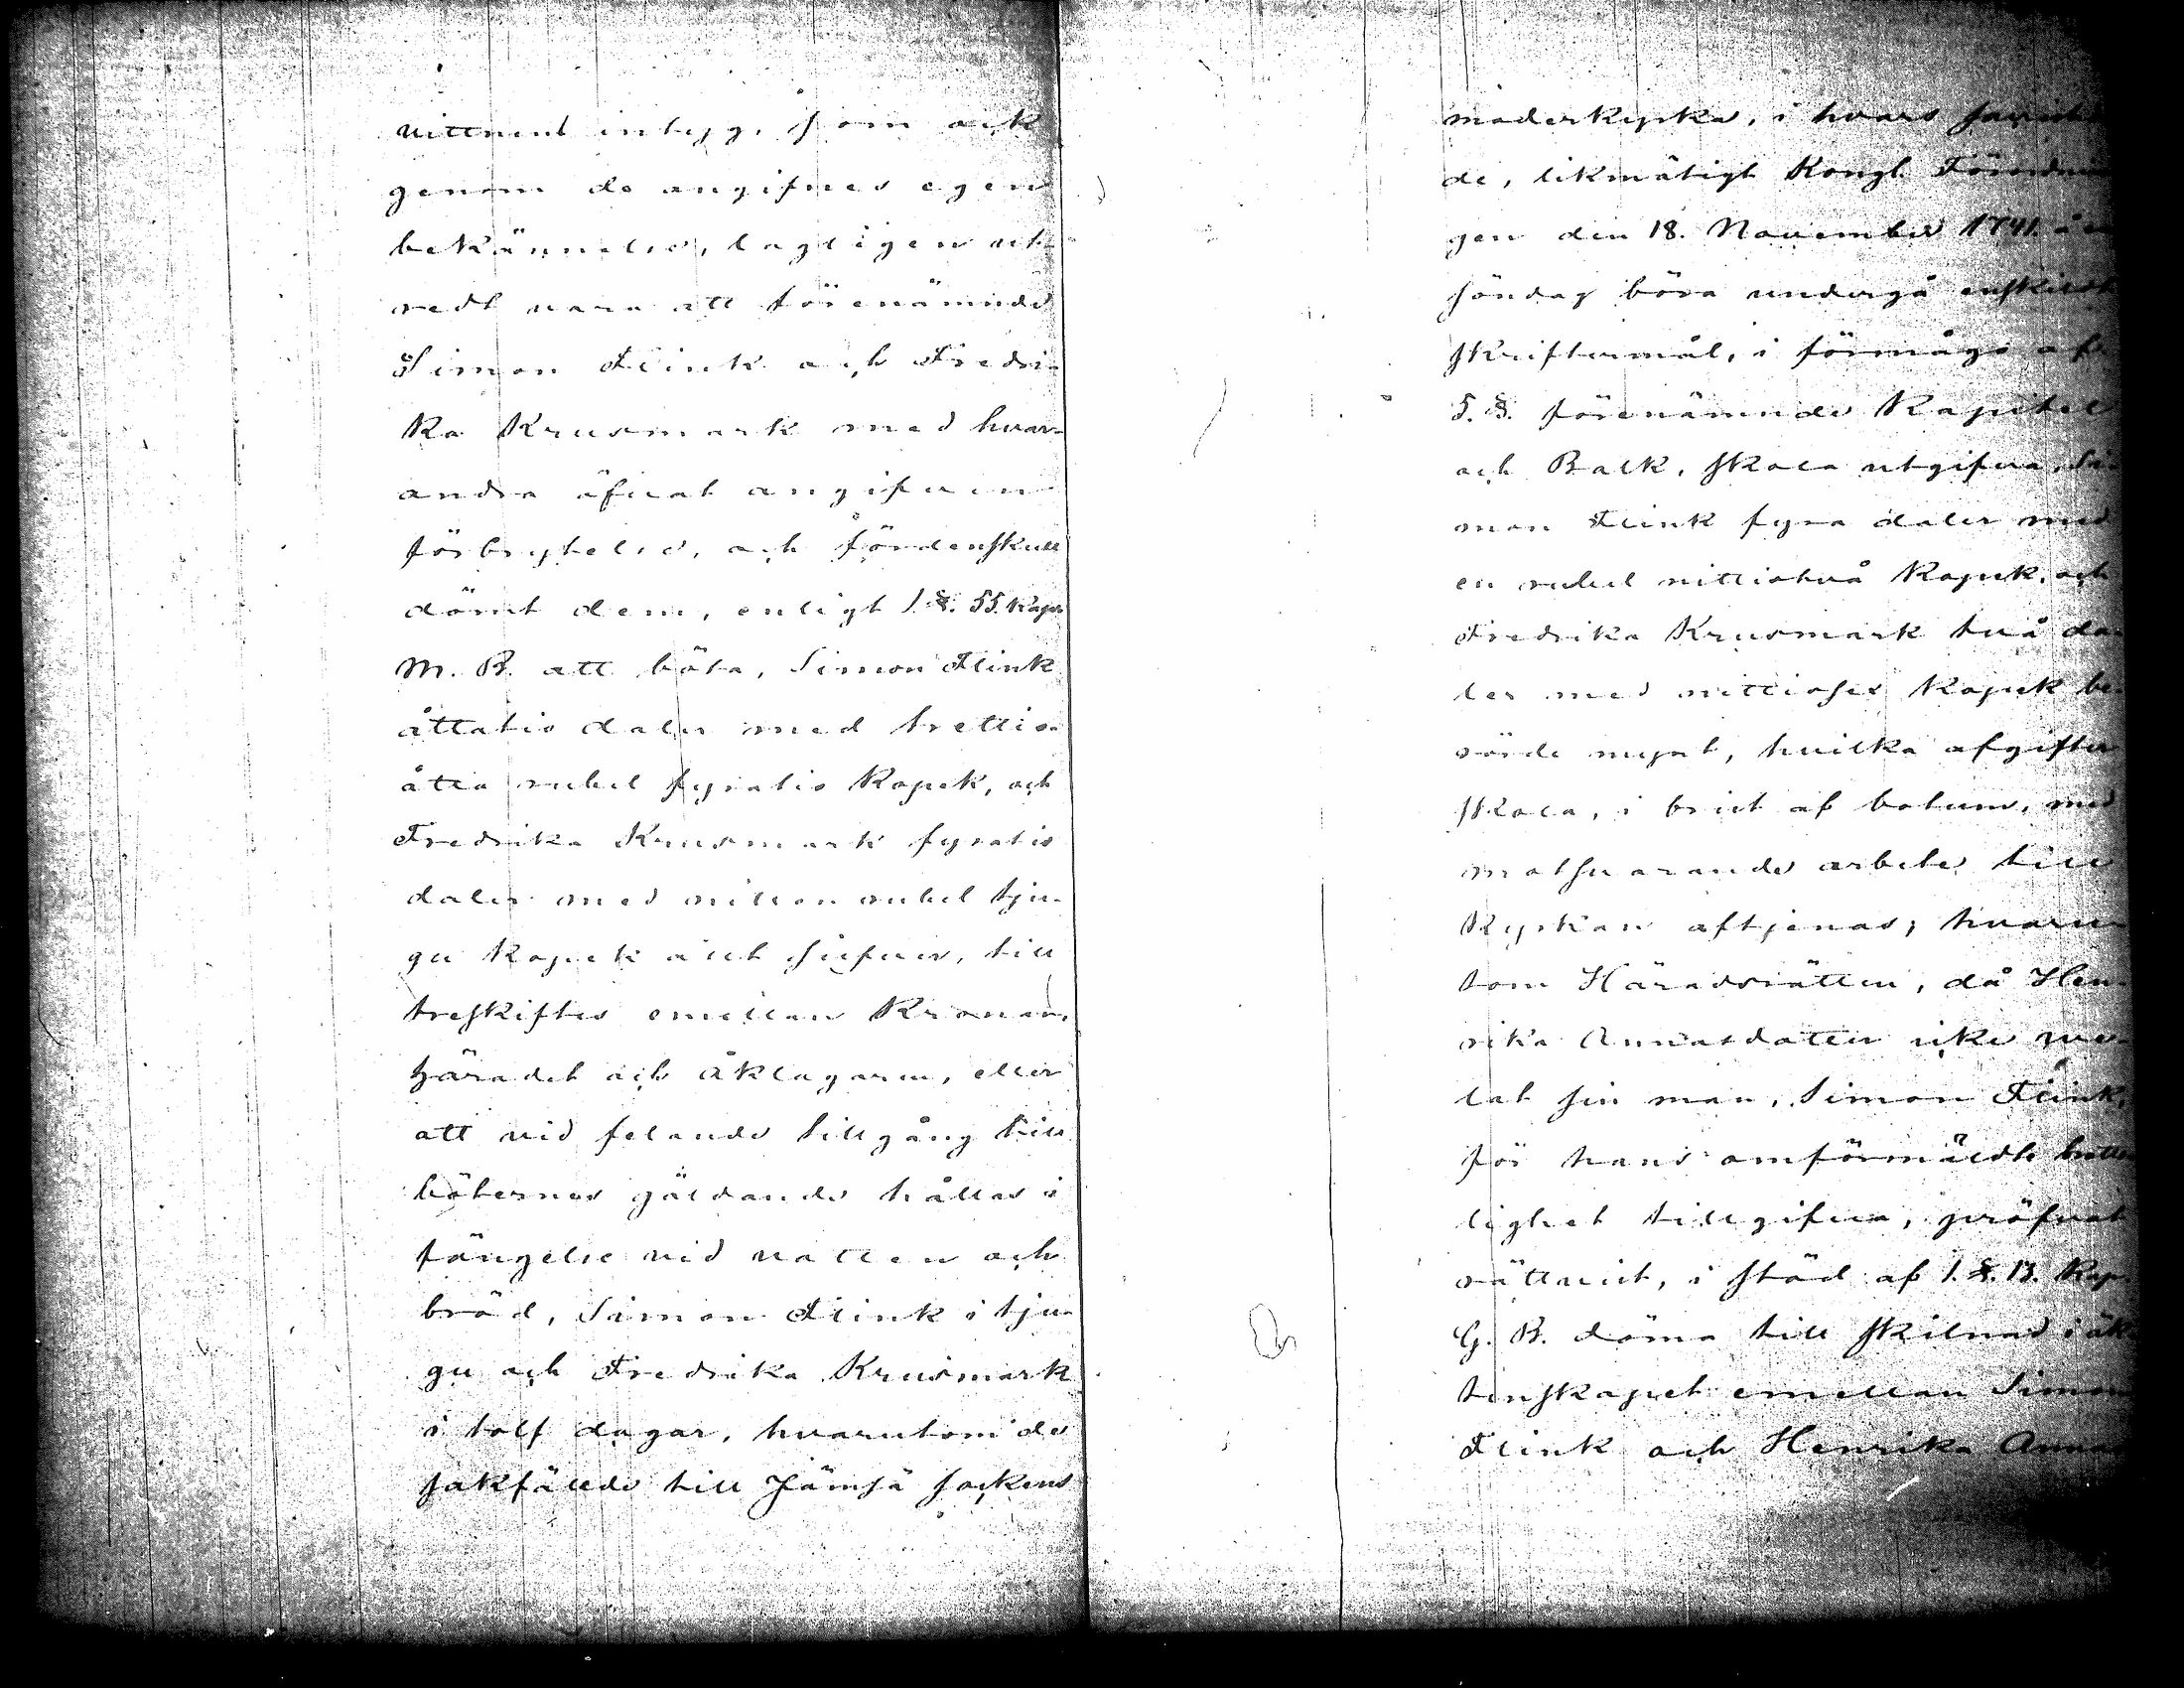 vittnens intyg, som ock
genom de angifnes egen
bekännelse, lagligen ut-
redt vara att förenämnde
Simon Flink och Fredri-
ka Krusmark med hvar-
andra öfvat angifven
förbrytelse, och fördenskull
dömt dem, enligt 1. §. 55. Kap.
M. B. att böta, Simon Flink
åttatio daler med trettio-
åtta rubel fyratio kopek, och
Fredrika Krusmark fyratio
daler med nitton rubel tju-
gu kopek allt silfver, till
treskiftes emellan Kronan,
häradet och åklagaren, eller
att vid felande tillgång till
böternes gäldande hållas i
fängelse vid vatten och
bröd, Simon Flink i tju-
gu och Fredrika Krusmark
i tolf dagar, hvarutom de
sakfällde till Jämsä sockens
moderkyrka, i hvars
de, likmätigt Kongl. Förordnin
gen den 18. November 1741. å en
söndag böra undergå enskildt
skriftermål, i förmågo af
5. §. förenämnde Kapitel
och Balk, skola utgifva, Si-
mon Flink fyra daler med
en rubel nittiotvå kopek, och
Fredrika Krusmark två da-
ler med nittiosex kopek be-
rörde mynt, hvilka afgifter
skola, i brist af botum, med
motsvarande arbete till
kyrkan aftjenas; hvaru-
tom Häradsrätten, då Hen-
rika Annasdotter icke ve-
lat sin man, Simon Flink,
för hans omförmäldte brotts
lighet tillgifva, pröfvat
rättvist, i stöd af 1. §. 13. Kap.
G. B. döma till skilnad i äk-
tenskapet emellan Simon
Flink och Henrika Annas